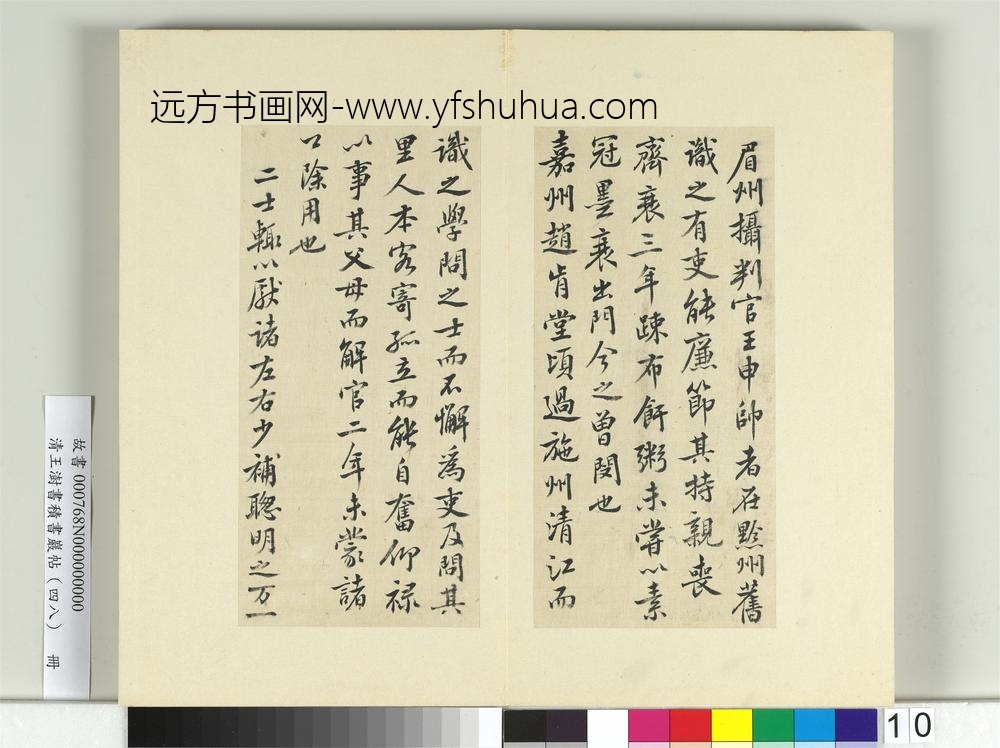 远方书画网-www.yfshuhua.com
眉州攝判官王申帥者在黔州舊
識之有吏能廉節其持親喪
齊衰三年疎布飦粥未嘗以素
冠墨衰出門今之曾閔也
嘉州趙肯堂頃過施州清江而
識之學問之士而不懈為吏及問其
里人本客寄孤立而能自奮仰祿
以事其父母而解官二年未蒙諸
公除用也
二士輒以獻諸左右少補聰明之万一
故書 000768N000000000
清王澍書積書巖帖(四八) 冊
10